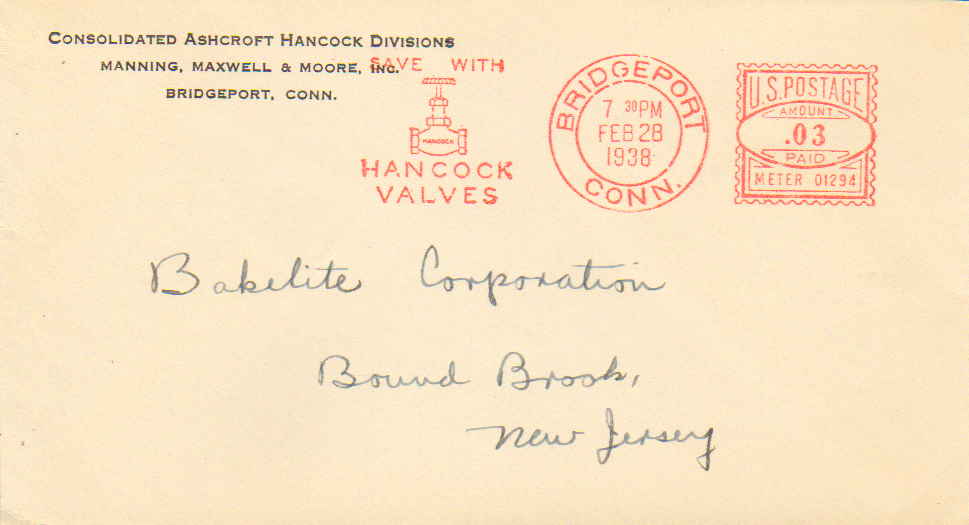 CONSOLIDATED ASHCROFT HANCOCK DIVISIONS
MANNING, MAXWELL & MOORE, INC.
BRIDGEPORT, CONN.
SAVE WITH
HANCOCK
HANCOCK
VALVES
BRIDGEPORT
7 30 PM
FEB 28
1938
CONN.
U.S. POSTAGE
AMOUNT
.03
PAID
METER 01294
Bakelite Corporation
Bound Brook,
New Jersey